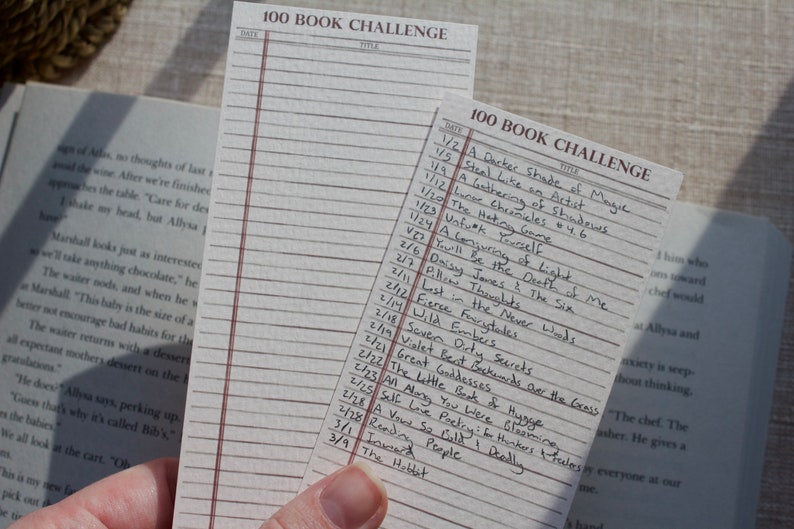 100 BOOK CHALLENGE
DATE TITLE
100 BOOK CHALLENGE
DATE TITLE
1/2 A Darker Shade of Magic
1/5 Steal Like an Artist
1/9 A Gathering of Shadows
1/12 Lunar Chronicles #4.6
1/20 The Hating Game
1/23 Unfu*k Yourself
1/24 A Conjuring of Light
1/27 You'll Be the Death of Me
2/6 Daisy Jones & The Six
2/7 Pillow Thoughts
2/11 Lost in the Never Woods
2/12 Fierce Fairytales
2/14 Wild Embers
2/18 Seven Dirty Secrets
2/19 Violet Bent Backwards Over the Grass
2/21 Great Goddesses
2/22 The Little Book of Hygge
2/23 All Along You Were Blooming
2/25 Self Love Poetry: for thinkers & feelers
2/28 A Vow So Bold & Deadly
2/28 Reading People
3/1 Inward
3/9 The Hobbit
sign of Atlas, no thoughts of last
avoid the wine. After we're finished
approaches the table. "Care for de
I shake my head, but Allysa
have"
Marshall looks just as interested
so we'll take anything chocolate," he
The waiter nods, and when he w
at Marshall. "This baby is the size of a
better not encourage bad habits for the
The waiter returns with a dessert
all expectant mothers dessert on the
gratulations."
"He does?" Allysa says, perking up.
"Guess that's why it's called Bib's,"
es the babies."
We all look at the cart. "Oh
This is my new fa
pick out
him who
toward
chef would
Allysa and
xiety is seep-
without thinking,
"The chef. The
dessert. He gives a
everyone at our